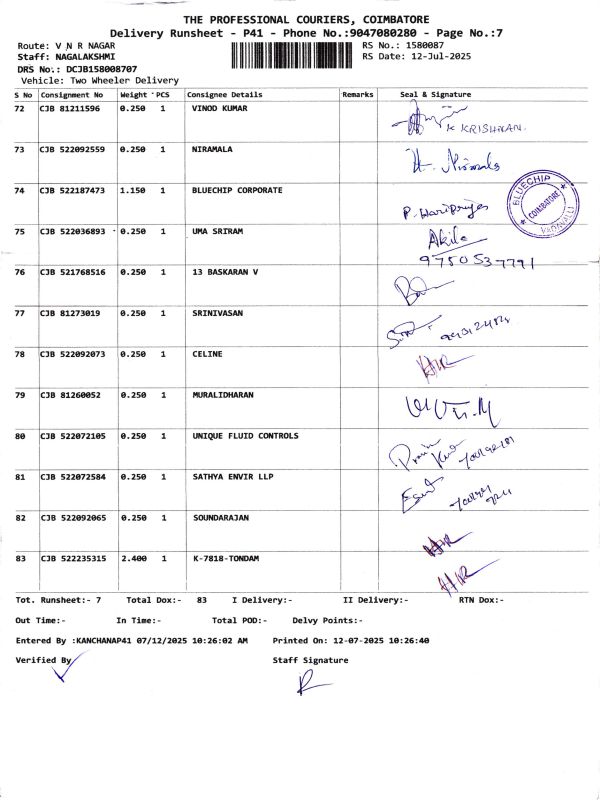 THE PROFESSIONAL COURIERS, COIMBATORE
Delivery Runsheet - P41 - Phone No.:9047080280 - Page No.:7
Route: V N R NAGAR
RS No.: 1580087
Staff: NAGALAKSHMI
RS Date: 12-Jul-2025
DRS No.: DCJB158008707
Vehicle: Two Wheeler Delivery
S No Consignment No Weight PCS Consignee Details Remarks Seal & Signature
72 CJB 81211596 0.250 1 VINOD KUMAR
K KRISHNAN.
73 CJB 522092559 0.250 1 NIRAMALA
Nirmala
74 CJB 522187473 1.150 1 BLUECHIP CORPORATE
P. Haripriya
BLUECHIP COIMBATORE VADAVALLI
75 CJB 522036893 0.250 1 UMA SRIRAM Akila
9750537791
76 CJB 521768516 0.250 1 13 BASKARAN V
77 CJB 81273019 0.250 1 SRINIVASAN
78 CJB 522092073 0.250 1 CELINE
79 CJB 81260052 0.250 1 MURALIDHARAN
80 CJB 522072105 0.250 1 UNIQUE FLUID CONTROLS
81 CJB 522072584 0.250 1 SATHYA ENVIR LLP
82 CJB 522092065 0.250 1 SOUNDARAJAN
83 CJB 522235315 2.400 1 K-7818-TONDAM
Tot. Runsheet:- 7 Total Dox:- 83 I Delivery:- II Delivery:- RTN Dox:-
Out Time:- In Time:- Total POD:- Delvy Points:-
Entered By :KANCHANAP41 07/12/2025 10:26:02 AM Printed On: 12-07-2025 10:26:40
Verified By Staff Signature